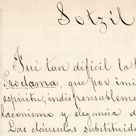 Sotzil
Fué tan dificil la t
Proclama, que por imi
espiritu, indispensableme
laconismo y elegancia
Las cláusulas substituid